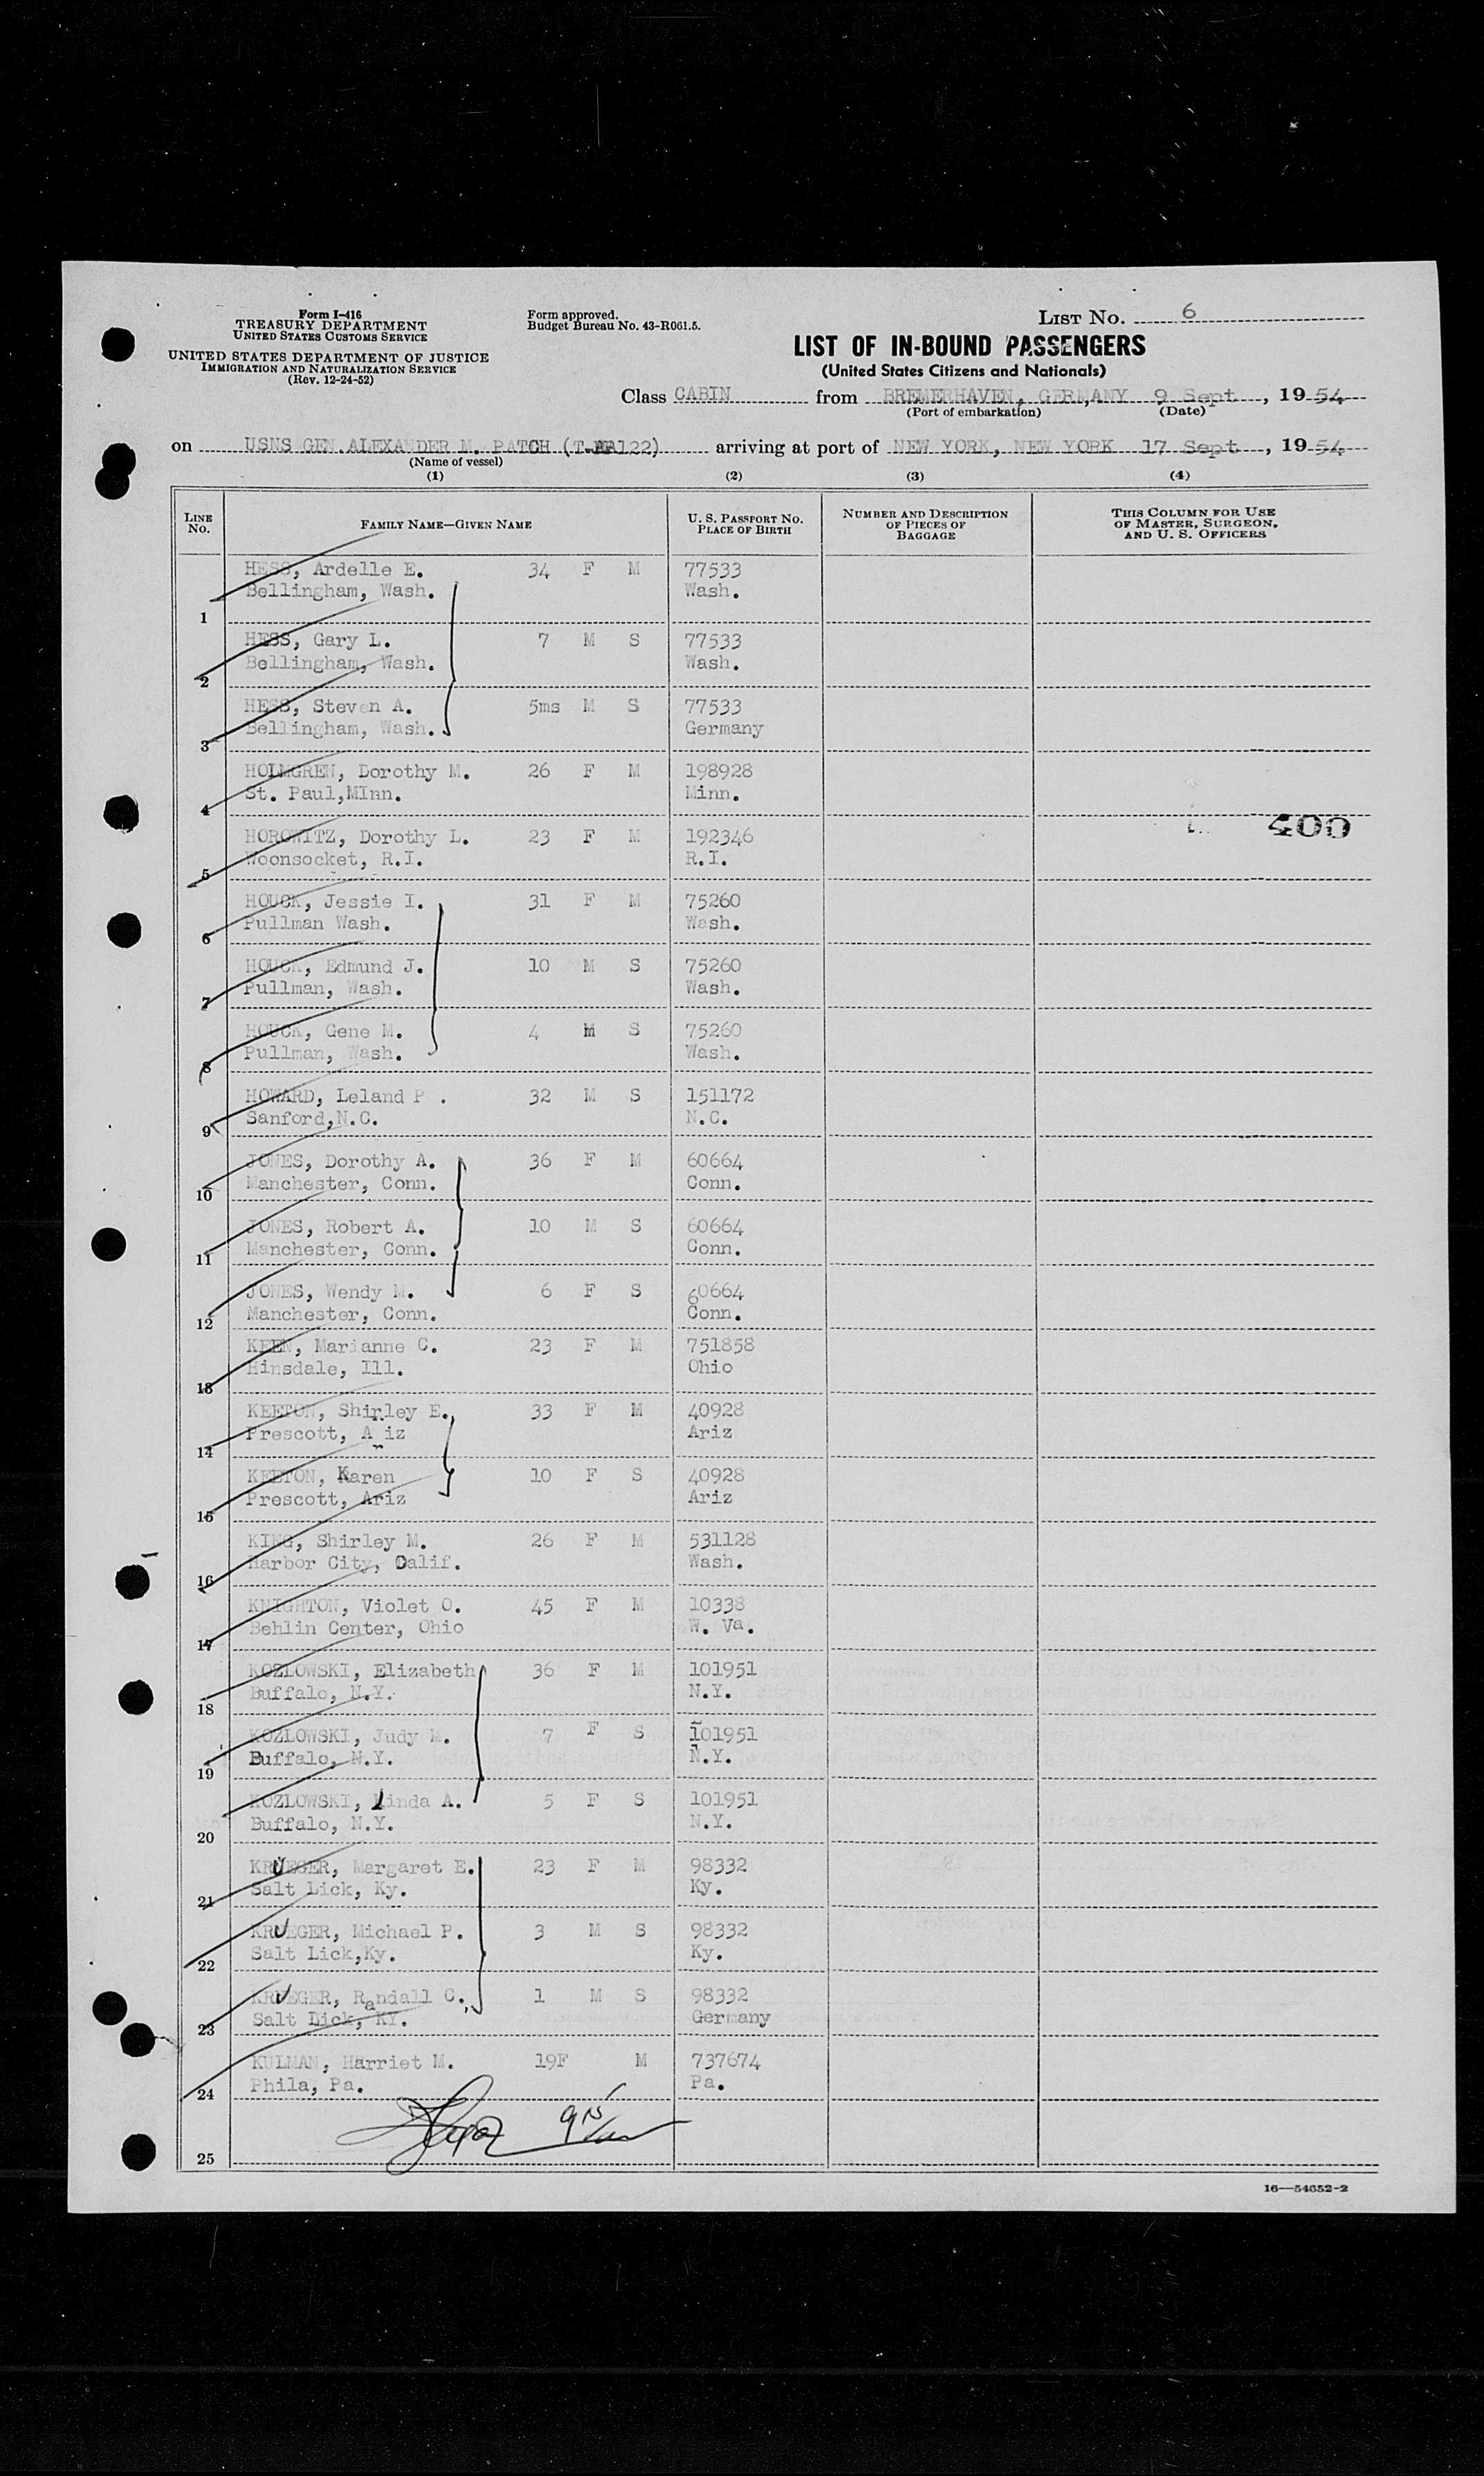 Form I-416
TREASURY DEPARTMENT
UNITED STATES CUSTOMS SERVICE
UNITED STATES DEPARTMENT OF JUSTICE
IMMIGRATION AND NATURALIZATION SERVICE
(Rev. 12-24-52)
Form approved.
Budget Bureau No. 43-R061.5.
LIST NO. 6
LIST OF IN-BOUND PASSENGERS
(United States Citizens and Nationals)
Class CABIN from BREMERHAVEN, GERMANY 9 Sept, 1954
(Port of embarkation) (Date)
on USNS GEN. ALEXANDER M. PATCH (T-AP122) arriving at port of NEW YORK, NEW YORK 17 Sept, 1954
(Name of vessel)
(1) (2) (3) (4)
LINE NO. FAMILY NAME—GIVEN NAME U. S. PASSPORT NO. PLACE OF BIRTH NUMBER AND DESCRIPTION OF PIECES OF BAGGAGE THIS COLUMN FOR USE OF MASTER, SURGEON, AND U. S. OFFICERS
HESS, Ardelle E. 34 F M 77533
1 Bellingham, Wash. Wash.
HESS, Gary L. 7 M S 77533
2 Bellingham, Wash. Wash.
HESS, Steven A. 5ms M S 77533
3 Bellingham, Wash. Germany
HOLMGREN, Dorothy M. 26 F M 198928
4 St. Paul,MInn. Minn.
400
HOROWITZ, Dorothy L. 23 F M 192346
5 Woonsocket, R.I. R.I.
HOUCK, Jessie I. 31 F M 75260
6 Pullman Wash. Wash.
HOUCK, Edmund J. 10 M S 75260
7 Pullman, Wash. Wash.
HOUCK, Gene M. 4 M S 75260
8 Pullman, Wash. Wash.
HOWARD, Leland P . 32 M S 151172
9 Sanford,N.C. N.C.
JONES, Dorothy A. 36 F M 60664
10 Manchester, Conn. Conn.
JONES, Robert A. 10 M S 60664
11 Manchester, Conn. Conn.
JONES, Wendy M. 6 F S 60664
12 Manchester, Conn. Conn.
KEEN, Marianne C. 23 F M 751858
13 Hinsdale, Ill. Ohio
KEETON, Shirley E. 33 F M 40928
14 Prescott, Ariz Ariz
KEETON, Karen 10 F S 40928
15 Prescott, Ariz Ariz
KING, Shirley M. 26 F M 531128
16 Harbor City, Calif. Wash.
KNIGHTON, Violet O. 45 F M 10338
17 Behlin Center, Ohio W. Va.
KOZLOWSKI, Elizabeth 36 F M 101951
18 Buffalo, N.Y. N.Y.
KOZLOWSKI, Judy M. 7 F S 101951
19 Buffalo, N.Y. N.Y.
KOZLOWSKI, Linda A. 5 F S 101951
20 Buffalo, N.Y. N.Y.
KRUEGER, Margaret E. 23 F M 98332
21 Salt Lick, Ky. Ky.
KRUEGER, Michael P. 3 M S 98332
22 Salt Lick,Ky. Ky.
KRUEGER, Randall C. 1 M S 98332
23 Salt Lick, KY. Germany
KULMAN, Harriet M. 19F M 737674
24 Phila, Pa. Pa.
25
16—54652-2